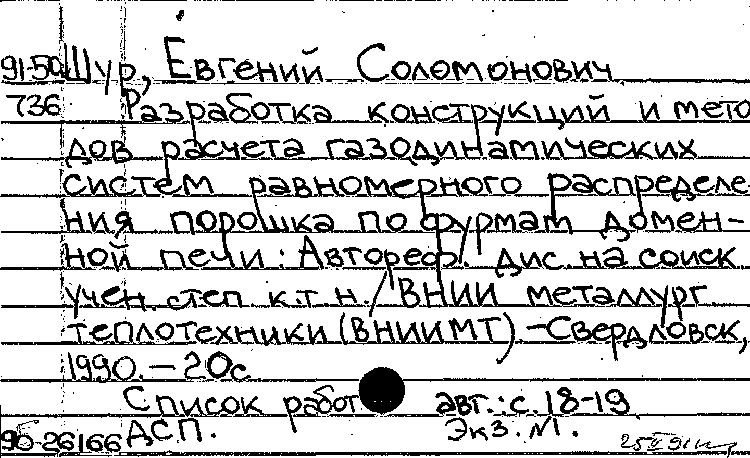 91-50 Шур, Евгений Соломонович
736 Разработка конструкций и мето
дов расчета газодинамических
систем равномерного распределе
ния порошка по фурмам домен-
ной печи: Автореф. дис. на соиск
учен. степ к.т.н./ВНИИ металлург
теплотехники (ВНИИМТ) -Свердловск,
1990. - 20с.
Список работ авт.: с. 18-19
90-26166 ДСП. Экз. №1.